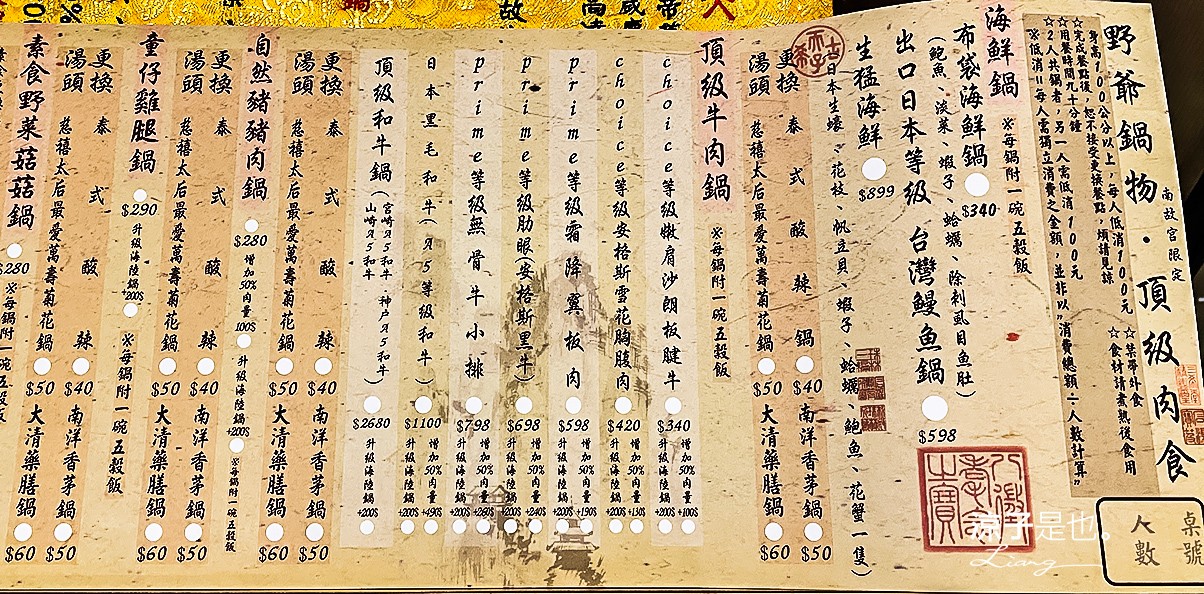 野爺鍋物・頂級肉食
南故宮限定
☆禁帶外食
☆食材請煮熟後食用
身高100公分以上，每人低消100元
☆完成餐點後，恕不接受更換餐點，煩請見諒
☆用餐時間九十分鐘
☆2人共鍋者，另一人需低消100元
※低消=每人需獨立消費之金額，並非以"消費總額÷人數計算"
桌號
人數
海鮮鍋 ※每鍋附一碗五穀飯
布袋海鮮鍋 $340
(鮑魚、淡菜、蝦子、蛤蠣、除刺虱目魚肚)
出口日本等級 台灣鰻魚鍋 $598
生猛海鮮 $899
(日本生蠔、花枝、帆立貝、蝦子、蛤蠣、鮑魚、花蟹一隻)
更換湯頭
泰式酸辣鍋 $40
慈禧太后最愛萬壽菊花鍋 $50
南洋香茅鍋 $50
大清藥膳鍋 $60
頂級牛肉鍋 ※每鍋附一碗五穀飯
choice等級嫩肩沙朗板腱牛 $340 增加50%肉量 +100$ 升級海陸鍋 +200$
choice等級安格斯雪花胸腹肉 $420 增加50%肉量 +130$ 升級海陸鍋 +200$
prime等級霜降翼板肉 $598 增加50%肉量 +190$ 升級海陸鍋 +200$
prime等級肋眼(安格斯黑牛) $698 增加50%肉量 +240$ 升級海陸鍋 +200$
prime等級無骨牛小排 $798 增加50%肉量 +260$ 升級海陸鍋 +200$
日本黑毛和牛(A5等級和牛) $1100 增加50%肉量 +490$ 升級海陸鍋 +200$
頂級和牛鍋(宮崎A5和牛、神戶A5和牛 山崎A5和牛) $2680 升級海陸鍋 +200$
更換湯頭
泰式酸辣鍋 $40
慈禧太后最愛萬壽菊花鍋 $50
南洋香茅鍋 $50
大清藥膳鍋 $60
自然豬豬肉鍋 $280 增加50%肉量 100$ 升級海陸鍋 +200$ ※每鍋附一碗五穀飯
更換湯頭
泰式酸辣鍋 $40
慈禧太后最愛萬壽菊花鍋 $50
南洋香茅鍋 $50
大清藥膳鍋 $60
童仔雞腿鍋 $290 升級海陸鍋 +200$ ※每鍋附一碗五穀飯
更換湯頭
泰式酸辣鍋 $40
慈禧太后最愛萬壽菊花鍋 $50
南洋香茅鍋 $50
大清藥膳鍋 $60
素食野菜菇菇鍋 $280 ※每鍋附一碗五穀飯
涼子是也。
Liang